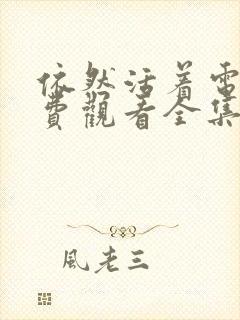 依然活着電
費觀看全集
風老三